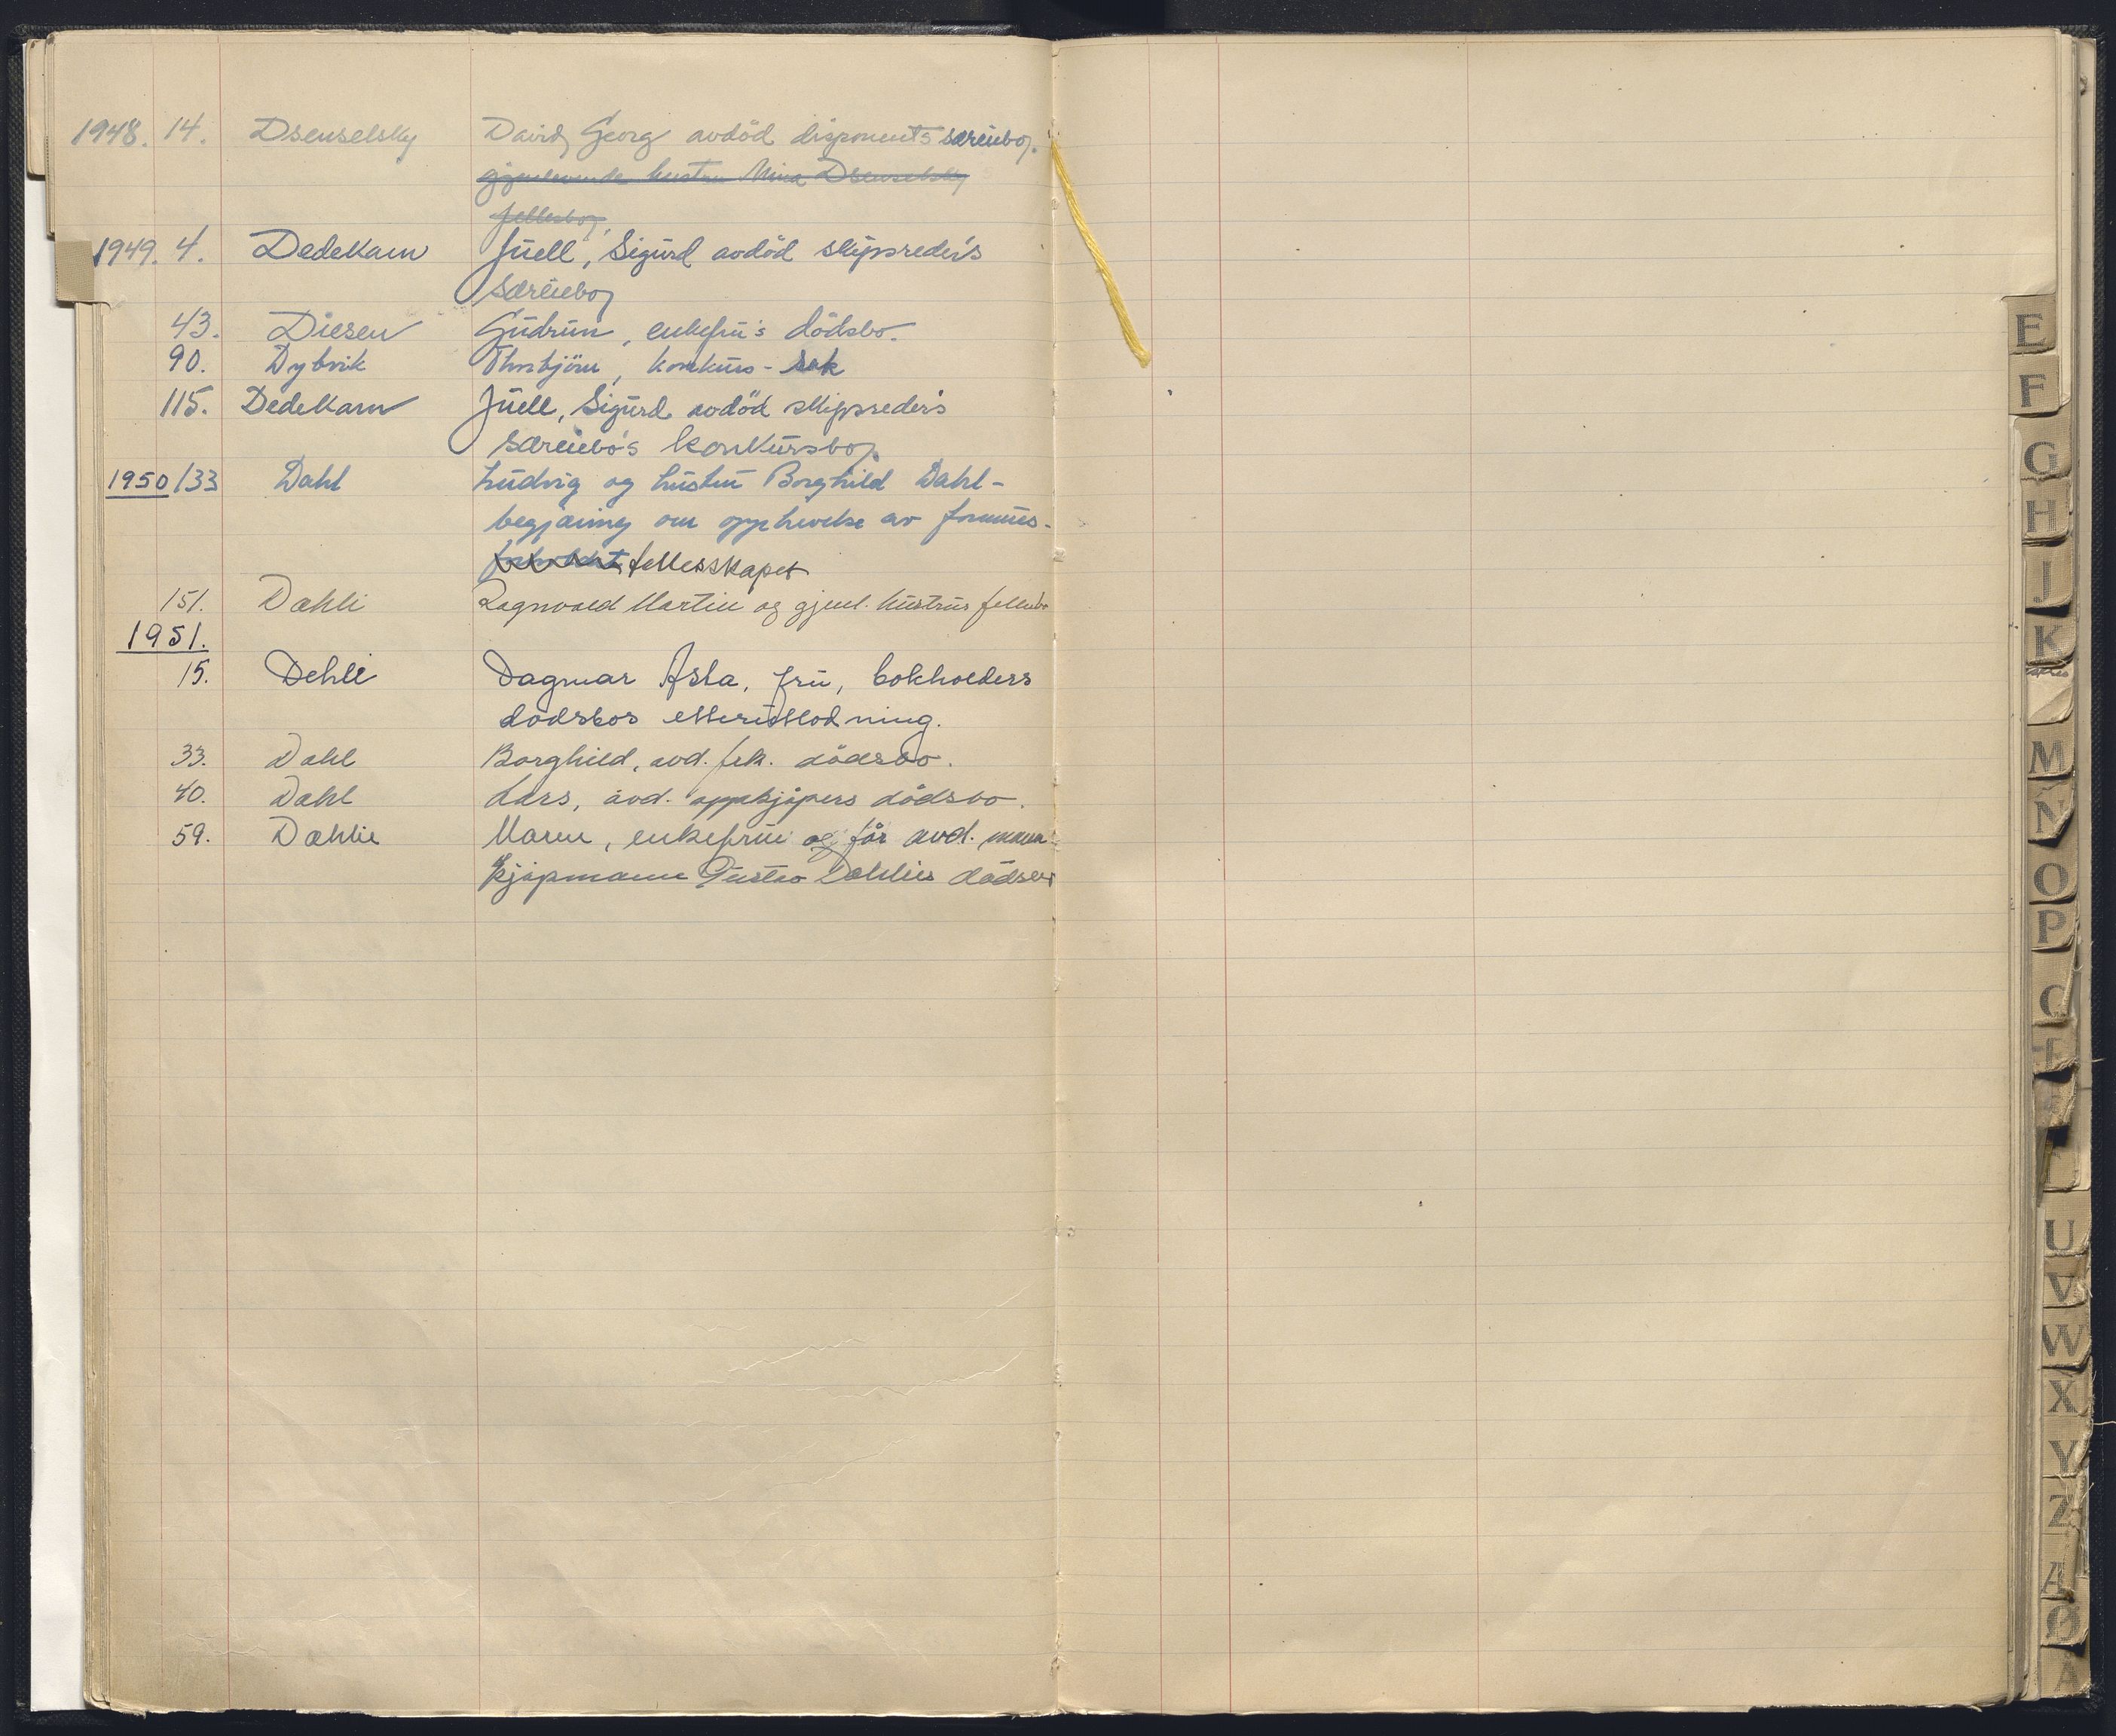 1948. 14. Dsenselsky David Georg avdöd disponents særeiebo,
gjenlevende hustru Mina Dsenselsky
fellesbo,
1949. 4. Dedekam Juell, Sigurd avdöd skipsreder's
særeiebo,
43. Diesen Gudrun, enkefru's dödsbo.
90. Dybvik Thorbjörn, konkurs-sak
115. Dedekam Juell, Sigurd avdöd skipsreder's
særeiebo's konkursbo,
1950/33 Dahl Ludvig og hustru Borghild Dahl-
begjæring om opphevelse av formues-
fellesskapet
151. Dahli Ragnvald Martin og gjenl. hustrus fellesbo
1951.
15. Dehli Dagmar Asta, frü, bokholders
dödsbos etterutlodning.
33. Dahl Borghild, avd. frk. dödsbo.
40. Dahl Lars, avd. oppkjöpers dödsbo.
59. Dahlie Maren, enkefrue og får avd. mann
kjöpmann Gustav Dahlies dödsbo
E
F
G
H
J
K
M
N
O
P
Q
U
V
W
X
Y
Z
Æ
Ø
Å